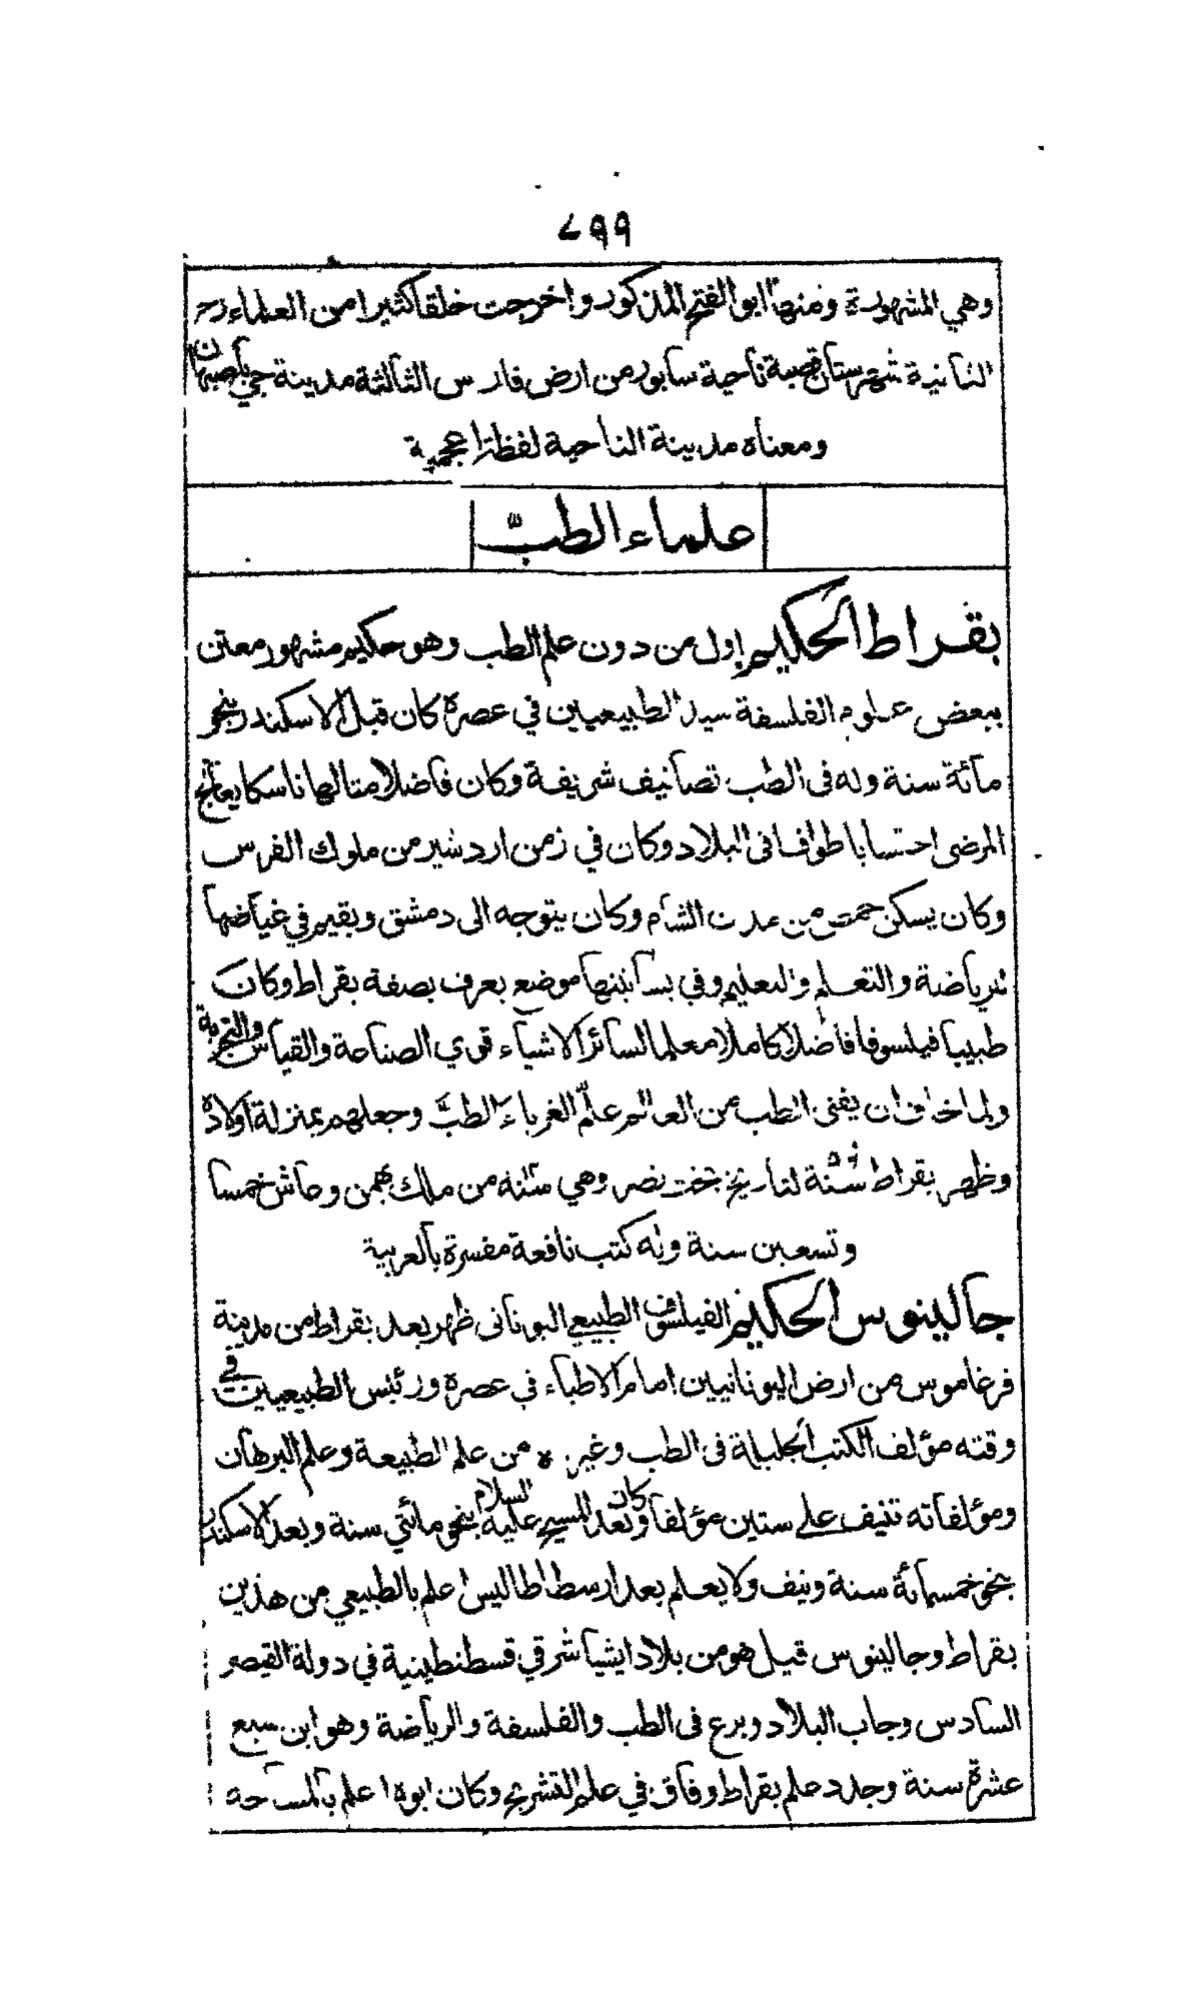 ٧٩٩
وهي المشهورة ومنها ابو الفتح المذكور واخرجت خلقا كثيرا من العلماء رح
الثانية شهرستان قصبة ناحية سابور من ارض فارس الثالثة مدينة جي باصبهان
ومعناه مدينة الناحية لفظتا عجمية
علماء الطب
بقراط الحكيم اول من دون علم الطب وهو حكيم مشهور معتن
ببعض علوم الفلسفة سيد الطبيعيين في عصره كان قبل الاسكندر بنحو
مائة سنة وله في الطب تصانيف شريفة وكان فاضلا متالها ناسكا يعالج
المرضى احتسابا طوافا في البلاد وكان في زمن اردشير من ملوك الفرس
وكان يسكن حمص من مدن الشام وكان يتوجه الى دمشق ويقيم في غياضها
للرياضة والتعلم والتعليم وفي بساتينها موضع يعرف بصفة بقراط وكان
طبيبا فيلسوفا فاضلا كاملا معلما لسائر الاشياء قوي الصناعة والقياس والتجربة
ولما خاف ان يفنى الطب من العالم علم الغرباء الطب وجعلهم بمنزلة اولاده
وظهر بقراط سنة لتاريخ بخت نصر وهي سنة من ملك بهمن وعاش خمسا
وتسعين سنة وله كتب نافعة مفسرة بالعربية
جالينوس الحكيم الفيلسوف الطبيعي اليوناني ظهر بعد بقراط من مدينة
فرغاموس من ارض اليونانيين امام الاطباء في عصره ورئيس الطبيعيين في
وقته مؤلف الكتب الجليلة في الطب وغيره من علم الطبيعة وعلم البرهان
ومؤلفاته تنيف على ستين مؤلفا وكان بعد المسيح عليه السلام بنحو مائتي سنة وبعد الاسكندر
بنحو خمسمائة سنة ونيف ولا يعلم بعد ارسطاطاليس اعلم بالطبيعي من هذين
بقراط وجالينوس قيل هو من بلاد ايشيا شرقي قسطنطينية في دولة القيصر
السادس وجاب البلاد وبرع في الطب والفلسفة والرياضة وهو ابن سبع
عشرة سنة وجدد علم بقراط وفاق في علم التشريح وكان ابوه اعلم بالمساحة